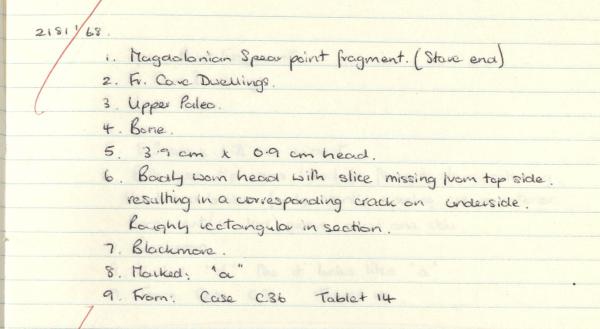 2181'68.
1. Magdalonian Spear point fragment. (Stave end)
2. Fr. Cave Dwellings.
3. Upper Paleo.
4. Bone.
5. 3.9 cm x 0.9 cm head.
6. Badly worn head with slice missing from top side.
resulting in a corresponding crack on underside.
Roughly rectangular in section.
7. Blackmore.
8. Marked: "a"
9. From: Case C36 Tablet 14